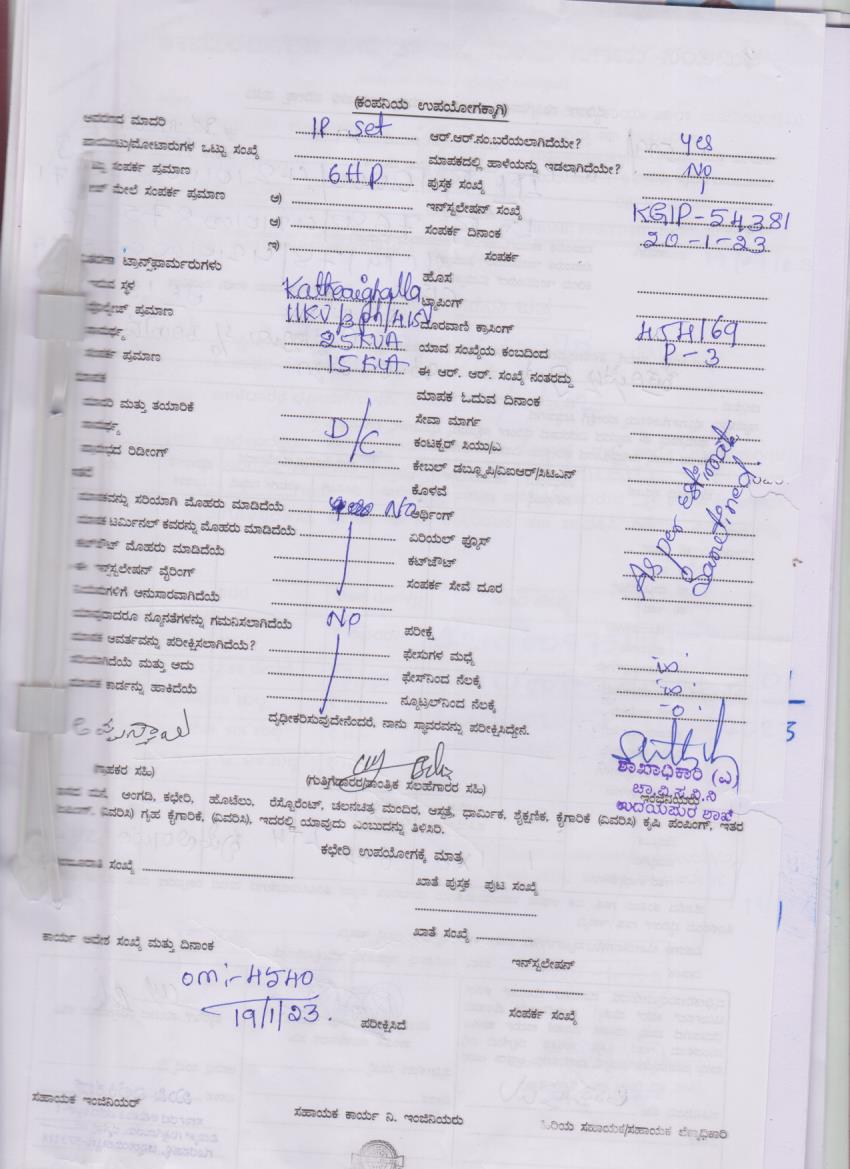 (ಕಂಪನಿಯ ಉಪಯೋಗಕ್ಕಾಗಿ)
ಮಾದರಿ IP set ಆರ್.ಆರ್.ನಂ.ಬರೆಯಲಾಗಿದೆಯೇ? yes
ಒಟ್ಟು ಸಂಖ್ಯೆ ಮಾಪಕದಲ್ಲಿ ಹಾಳೆಯನ್ನು ಇಡಲಾಗಿದೆಯೇ? No
ಸಂಪರ್ಕ ಪ್ರಮಾಣ 6HP ಪುಸ್ತಕ ಸಂಖ್ಯೆ
ಮೇಲೆ ಸಂಪರ್ಕ ಪ್ರಮಾಣ ಅ) ಇನ್‌ಸ್ಟಲೇಷನ್ ಸಂಖ್ಯೆ KGIP-54381
ಆ) ಸಂಪರ್ಕ ದಿನಾಂಕ 20-1-23
ಇ) ಸಂಪರ್ಕ
ಟ್ರಾನ್ಸ್‌ಫಾರ್ಮರುಗಳು ಹೊಸ
ಸ್ಥಳ ಟ್ಯಾಪಿಂಗ್
ಪ್ರಮಾಣ 11KV/3ph/415V ದೂರವಾಣಿ ಕ್ರಾಸಿಂಗ್ 454/69
25KVA ಯಾವ ಸಂಖ್ಯೆಯ ಕಂಬದಿಂದ P-3
ಪ್ರಮಾಣ 15KVA ಈ ಆರ್. ಆರ್. ಸಂಖ್ಯೆ ನಂತರದ್ದು
ಮಾಪಕ ಓದುವ ದಿನಾಂಕ
ಮತ್ತು ತಯಾರಿಕೆ ಸೇವಾ ಮಾರ್ಗ
D/C ಕಂಟಕ್ಟರ್ ಸಿಯು/ಎ
ರಿಡೀಂಗ್ ಕೇಬಲ್ ಡಬ್ಲ್ಯೂಪಿ/ವಿಐಆರ್/ಸಿಟಿಎನ್
As per estimate
Sanctined
ಕೊಳವೆ
ಸರಿಯಾಗಿ ಮೊಹರು ಮಾಡಿದೆಯೆ No ಅರ್ಥಿಂಗ್
ಟರ್ಮಿನಲ್ ಕವರನ್ನು ಮೊಹರು ಮಾಡಿದೆಯೆ ಏರಿಯಲ್ ಫ್ಯೂಸ್
ಮೊಹರು ಮಾಡಿದೆಯೆ ಕಟ್‌ಔಟ್
ಇನ್‌ಸ್ಟಲೇಷನ್ ವೈರಿಂಗ್ ಸಂಪರ್ಕ ಸೇವೆ ದೂರ
ಅನುಸಾರವಾಗಿದೆಯೆ
ನ್ಯೂನತೆಗಳನ್ನು ಗಮನಿಸಲಾಗಿದೆಯೆ No ಪರೀಕ್ಷೆ
ಆವರ್ತವನ್ನು ಪರೀಕ್ಷಿಸಲಾಗಿದೆಯೆ? ಫೇಸುಗಳ ಮಧ್ಯೆ
ಮತ್ತು ಅದು ಫೇಸ್‌ನಿಂದ ನೆಲಕ್ಕೆ
ಕಾರ್ಡನ್ನು ಹಾಕಿದೆಯೆ ನ್ಯೂಟ್ರಲ್‌ನಿಂದ ನೆಲಕ್ಕೆ
ದೃಢೀಕರಿಸುವುದೇನೆಂದರೆ, ನಾನು ಸ್ಥಾವರವನ್ನು ಪರೀಕ್ಷಿಸಿದ್ದೇನೆ.
ಸಹಿ) (ಗುತ್ತಿಗೆದಾರರ/ತಾಂತ್ರಿಕ ಸಲಹೆಗಾರರ ಸಹಿ) ಇಂಜಿನಿಯರು
ಶಾಖಾಧಿಕಾರಿ (ವಿ)
ಚಾ.ವಿ.ಸ.ನಿ.ನಿ
ಉದಯಪುರ ಶಾಖೆ
ಮನೆ, ಅಂಗಡಿ, ಕಛೇರಿ, ಹೊಟೇಲು, ರೆಸ್ಟೊರೆಂಟ್, ಚಲನಚಿತ್ರ ಮಂದಿರ, ಆಸ್ಪತ್ರೆ, ಧಾರ್ಮಿಕ, ಶೈಕ್ಷಣಿಕ, ಕೈಗಾರಿಕೆ (ವಿವರಿಸಿ) ಕೃಷಿ ಪಂಪಿಂಗ್, ಇತರ
ವಿವರಿಸಿ) ಗೃಹ ಕೈಗಾರಿಕೆ, (ವಿವರಿಸಿ), ಇದರಲ್ಲಿ ಯಾವುದು ಎಂಬುದನ್ನು ತಿಳಿಸಿರಿ.
ಕಛೇರಿ ಉಪಯೋಗಕ್ಕೆ ಮಾತ್ರ
ಸಂಖ್ಯೆ ಖಾತೆ ಪುಸ್ತಕ ಪುಟ ಸಂಖ್ಯೆ
ಖಾತೆ ಸಂಖ್ಯೆ
ಕಾರ್ಯ ಆದೇಶ ಸಂಖ್ಯೆ ಮತ್ತು ದಿನಾಂಕ
ಇನ್‌ಸ್ಟಲೇಷನ್
OM:-4540
19/1/23. ಪರೀಕ್ಷಿಸಿದೆ
ಸಂಪರ್ಕ ಸಂಖ್ಯೆ
ಸಹಾಯಕ ಇಂಜಿನಿಯರ್ ಸಹಾಯಕ ಕಾರ್ಯ ನಿ. ಇಂಜಿನಿಯರು ಹಿರಿಯ ಸಹಾಯಕ/ಸಹಾಯಕ ಲೆಕ್ಕಾಧಿಕಾರಿ